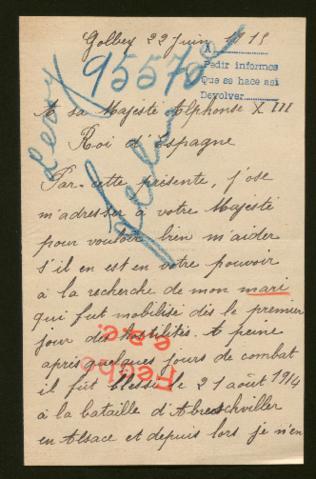 Golbey 22 Juin 1915
A
Pedir informes
Que se hace asi
Devolver
95570
Leroy
A sa Majesté Alphonse XIII
Roi d'Espagne
Par cette présente, j'ose
m'adresser à votre Majesté
pour vouloir bien m'aider
s'il en est en votre pouvoir
à la recherche de mon mari
qui fut mobilisé dès le premier
jour des hostilités. A peine
après quelques jours de combat
il fut blessé le 21 août 1914
à la bataille d'Abreschviller
en Alsace et depuis lors je n'en